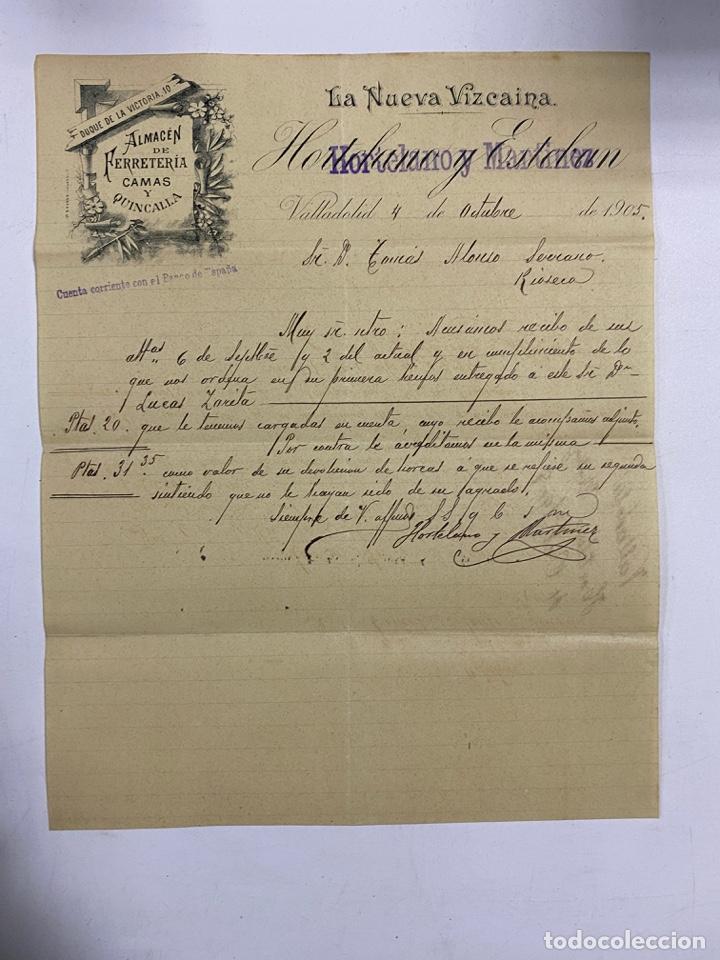 DUQUE DE LA VICTORIA, 10
ALMACÉN
DE
FERRETERÍA
CAMAS
Y
QUINCALLA
La Nueva Vizcaina.
Hortelano y Esteban
Hortelano y Martinez
Valladolid 4 de Octubre de 1905.
Cuenta corriente con el Banco de España
Sr. D. Tomás Alonso Serrano.
Rioseco
Muy sr. ntro: Acusamos recibo de sus
attas 6 de Septbre y 2 del actual y en cumplimiento de lo
que nos ordena en su primera hemos entregado á este Sr. Dn
Lucas Zorita
Ptas. 20 que le tenemos cargadas en cuenta, cuyo recibo le acompañamos adjunto.
Por contra le acreditamos en la misma
Ptas. 31.35 como valor de su devolucion de horcas a que se refiere su segunda
sintiendo que no le hayan sido de su agrado.
Siempre de V. affmos S S q b s m
Hortelano y Martinez
todocoleccion
todocoleccion.net